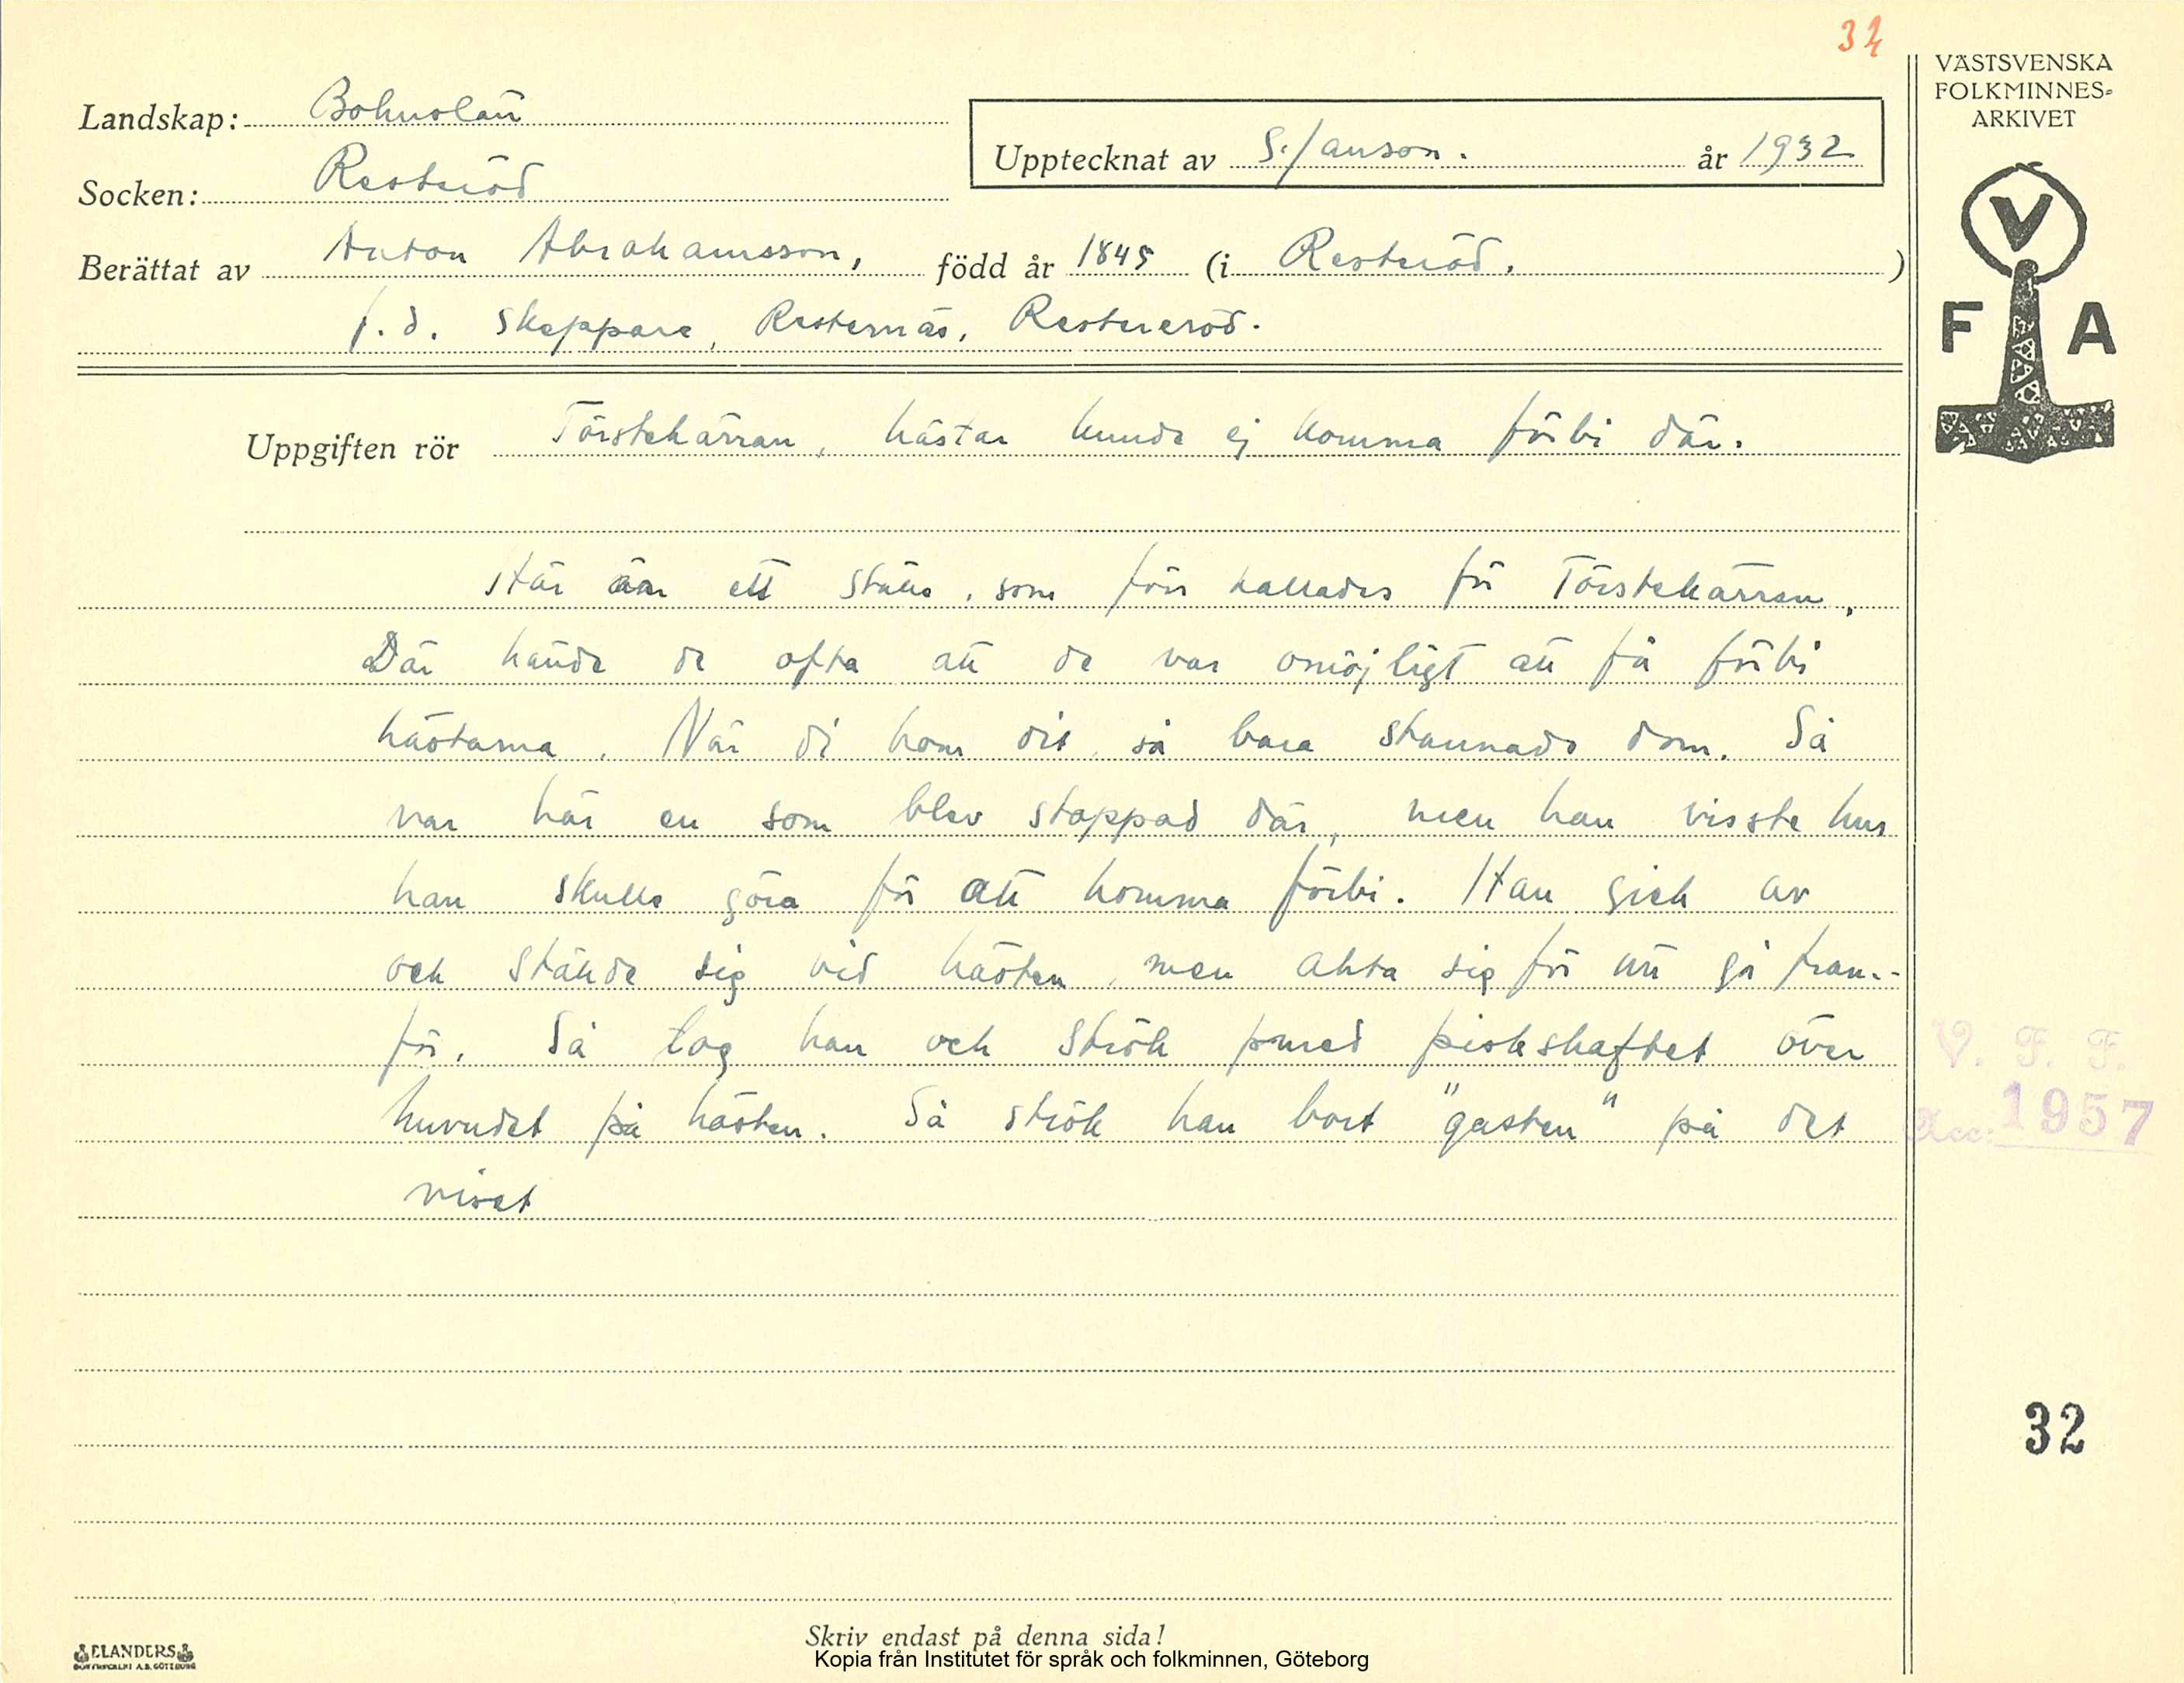 32
VÄSTSVENSKA
FOLKMINNES-
ARKIVET
Landskap: Bohuslän
Upptecknat av S. Janson. år 1932
Socken: Resteröd
Berättat av Anton Abrahamsson, född år 1845 (i Resteröd. )
f.d. Skeppare, Resternäs, Restereröd.
V
F A
Uppgiften rör Törstekärran, hästar kunde ej komma förbi där.
Här är ett ställe, som förr kallades för Törstekärran.
Där hände de ofta att de var omöjligt att få förbi
hästarna. När di kom dit, så bara stannade dom. Så
var här en som blev stoppad där, men han visste hur
han skulle göra för att komma förbi. Han gick av
och stälde sig vid hästen, men akta sig för att gå fram-
för. Så tog han och strök med piskskaftet över
huvudet på hästen. Så strök han bort "gasten" på det
viset
V. F. F.
Acc: 1957
32
ELANDERS
Skriv endast på denna sida!
Kopia från Institutet för språk och folkminnen, Göteborg